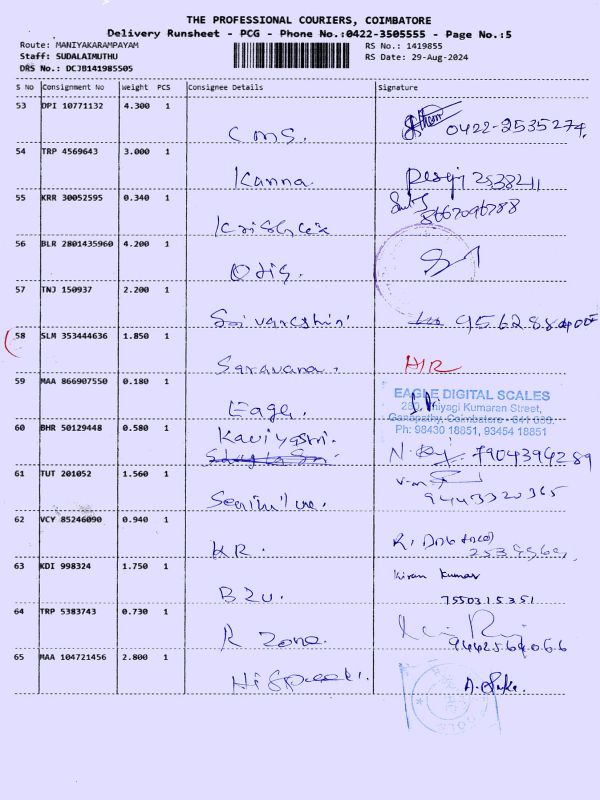 THE PROFESSIONAL COURIERS, COIMBATORE
Delivery Runsheet - PCG - Phone No.:0422-3505555 - Page No.:5
Route: MANIYAKARAMPAYAM
Staff: SUDALAIMUTHU
DRS No.: DCJB141985505
RS No.: 1419855
RS Date: 29-Aug-2024
S No Consignment No Weight PCS Consignee Details Signature
53 DPI 10771132 4.300 1
CMS. 0422-2535274
54 TRP 4569643 3.000 1
Kanna 2538211
55 KRR 30052595 0.340 1
8667096788
56 BLR 2801435960 4.200 1
Otis.
57 TNJ 150937 2.200 1
58 SLM 353444636 1.850 1
Saravana. H/R
59 MAA 866907550 0.180 1
Eagle.
EAGLE DIGITAL SCALES
Thiyagi Kumaran Street,
Ganapathy, Coimbatore - 641 006.
Ph: 98430 18851, 93454 18851
60 BHR 50129448 0.580 1
Kaviyasri. 7904394289
61 TUT 201052 1.560 1
9443320365
62 VCY 85246090 0.940 1
KR.
63 KDI 998324 1.750 1
B2U. Kiran Kumar
7550315351
64 TRP 5383743 0.730 1
R Zone.
65 MAA 104721456 2.800 1